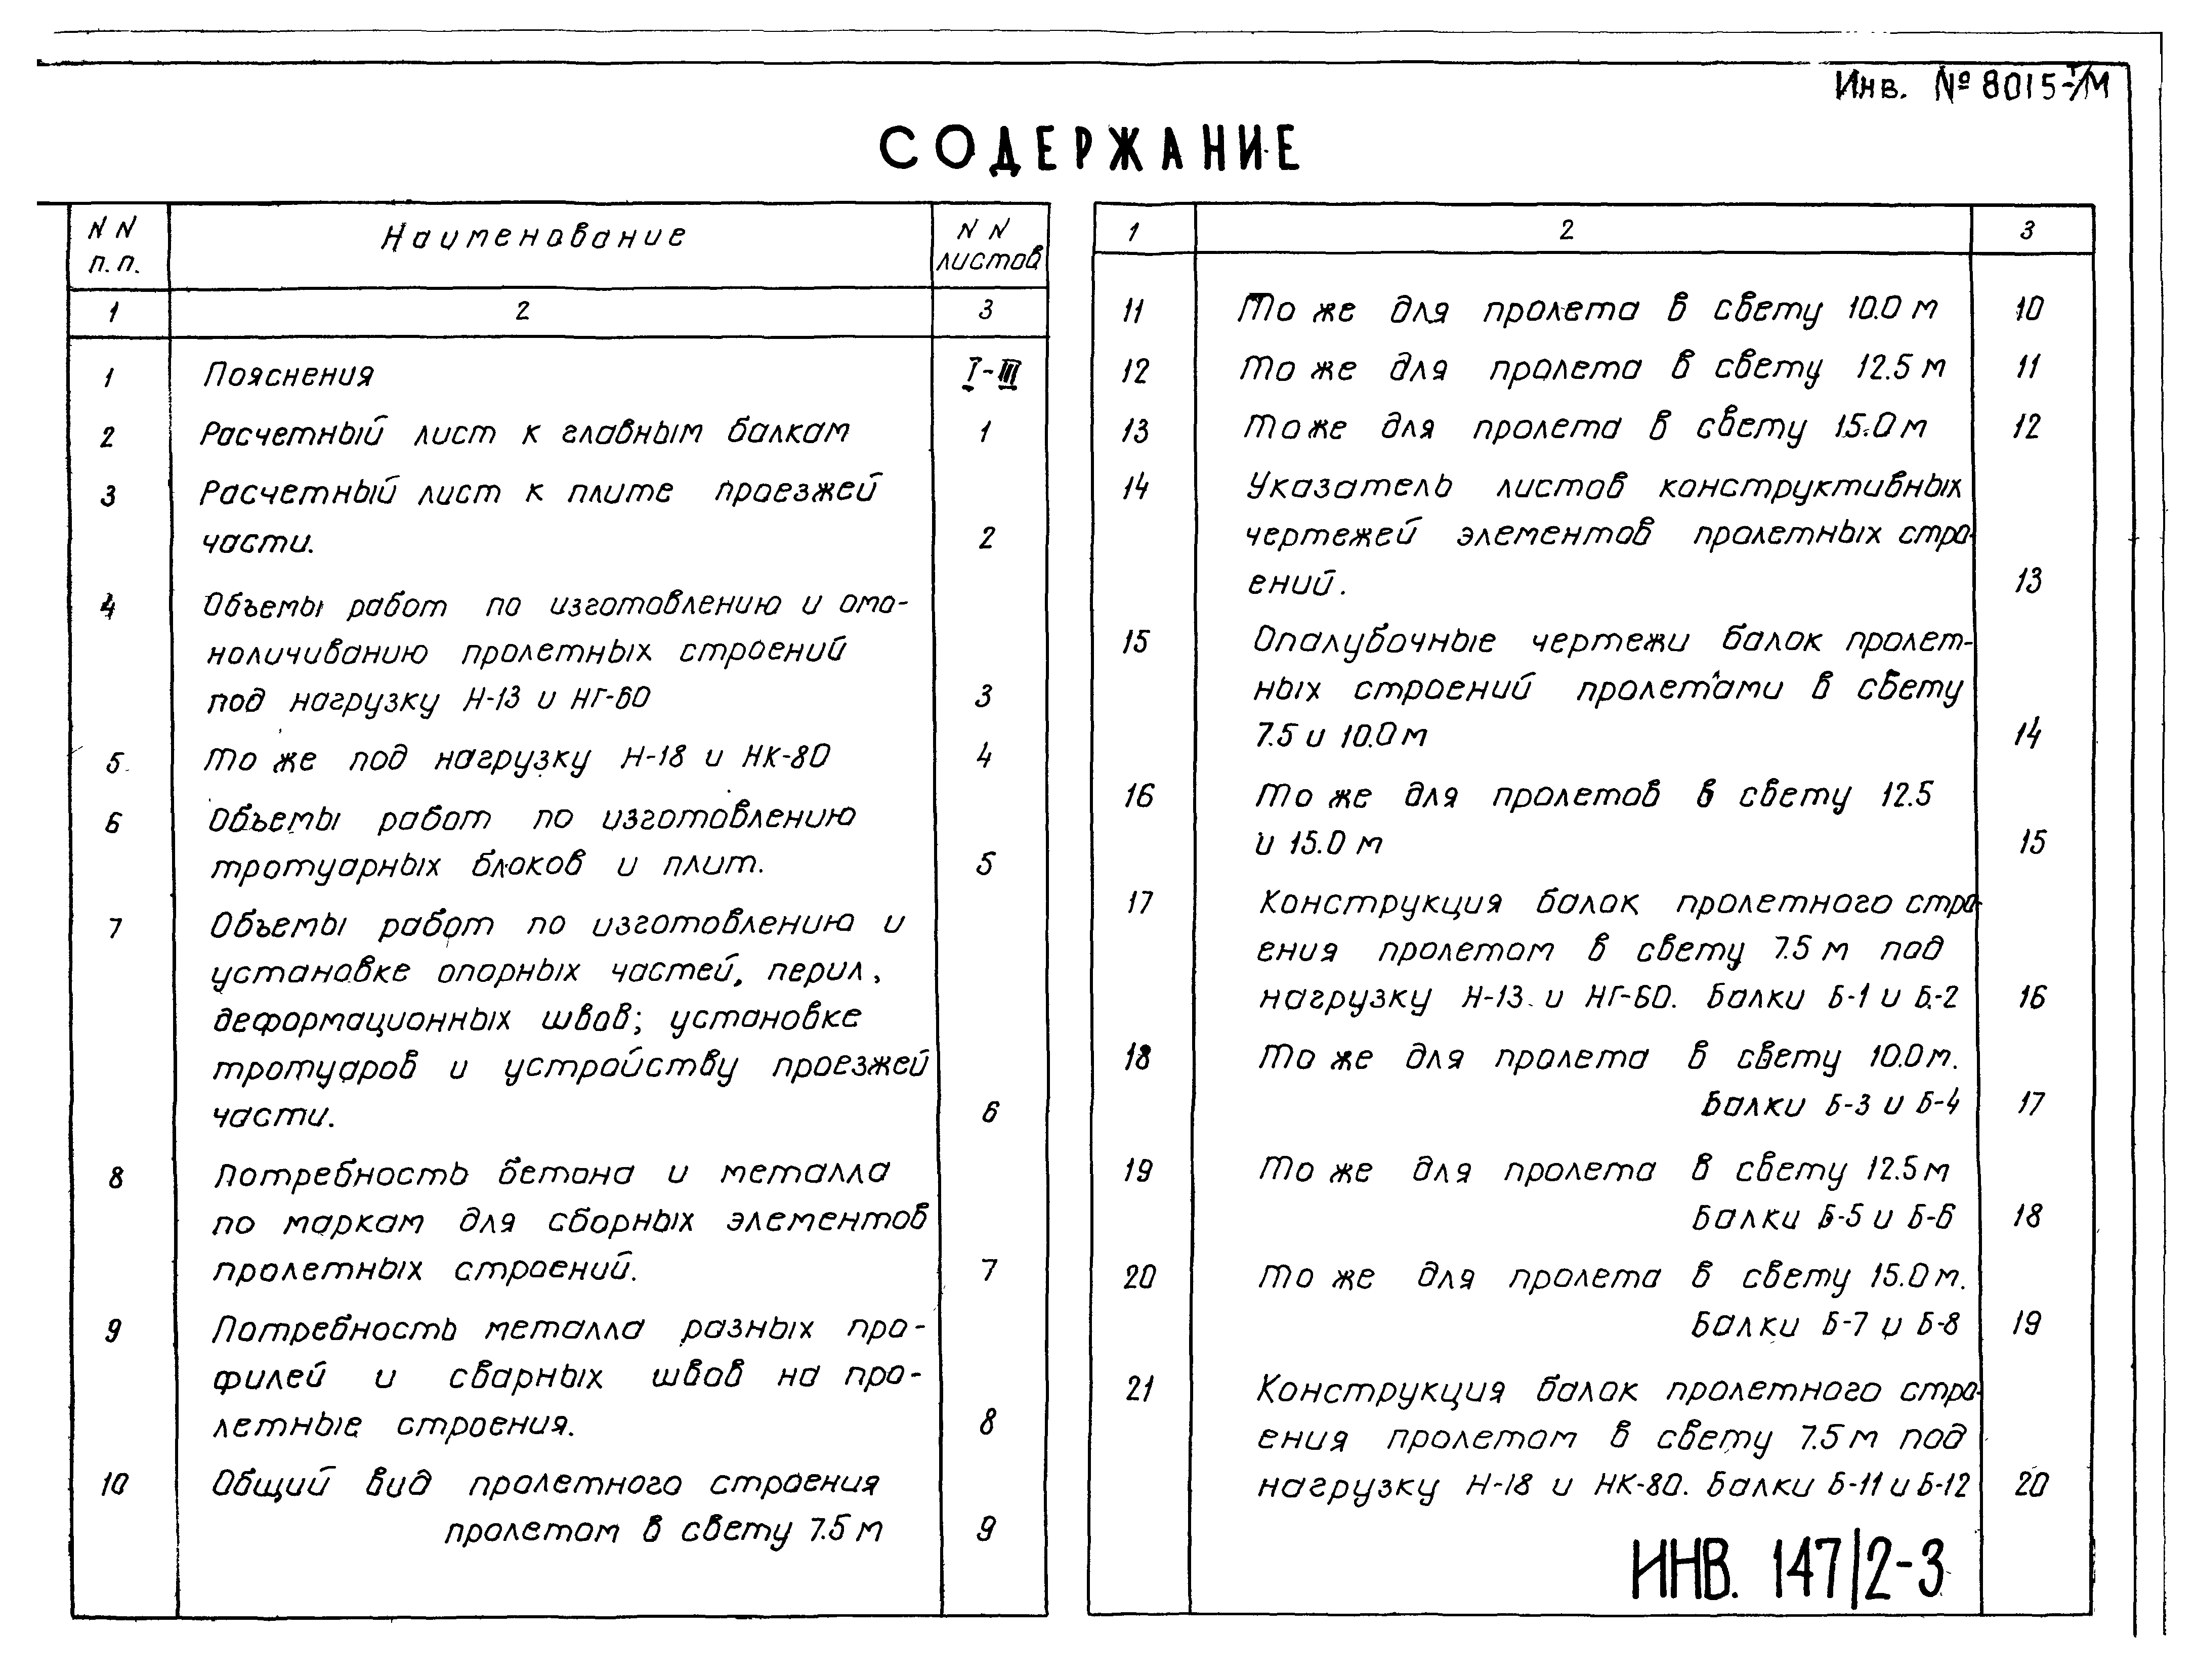 Инв. № 8015-7/М
СОДЕРЖАНИЕ
N N п. п. Наименование N N листов
1 2 3
1 Пояснения I-III
2 Расчетный лист к главным балкам 1
3 Расчетный лист к плите проезжей
части. 2
4 Объемы работ по изготовлению и омо-
ноличиванию пролетных строений
под нагрузку Н-13 и НГ-60 3
5 То же под нагрузку Н-18 и НК-80 4
6 Объемы работ по изготовлению
тротуарных блоков и плит. 5
7 Объемы работ по изготовлению и
установке опорных частей, перил,
деформационных швов; установке
тротуаров и устройству проезжей
части. 6
8 Потребность бетона и металла
по маркам для сборных элементов
пролетных строений. 7
9 Потребность металла разных про-
филей и сварных швов на про-
летные строения. 8
10 Общий вид пролетного строения
пролетом в свету 7.5 м 9
1 2 3
11 То же для пролета в свету 10.0 м 10
12 То же для пролета в свету 12.5 м 11
13 То же для пролета в свету 15.0 м 12
14 Указатель листов конструктивных
чертежей элементов пролетных стро-
ений. 13
15 Опалубочные чертежи балок пролет-
ных строений пролетами в свету
7.5 и 10.0 м 14
16 То же для пролетов в свету 12.5
и 15.0 м 15
17 Конструкция балок пролетного стро-
ения пролетом в свету 7.5 м под
нагрузку Н-13 и НГ-60. Балки Б-1 и Б-2 16
18 То же для пролета в свету 10.0 м.
Балки Б-3 и Б-4 17
19 То же для пролета в свету 12.5 м
Балки Б-5 и Б-6 18
20 То же для пролета в свету 15.0 м.
Балки Б-7 и Б-8 19
21 Конструкция балок пролетного стро-
ения пролетом в свету 7.5 м под
нагрузку Н-18 и НК-80. Балки Б-11 и Б-12 20
ИНВ. 147/2-3